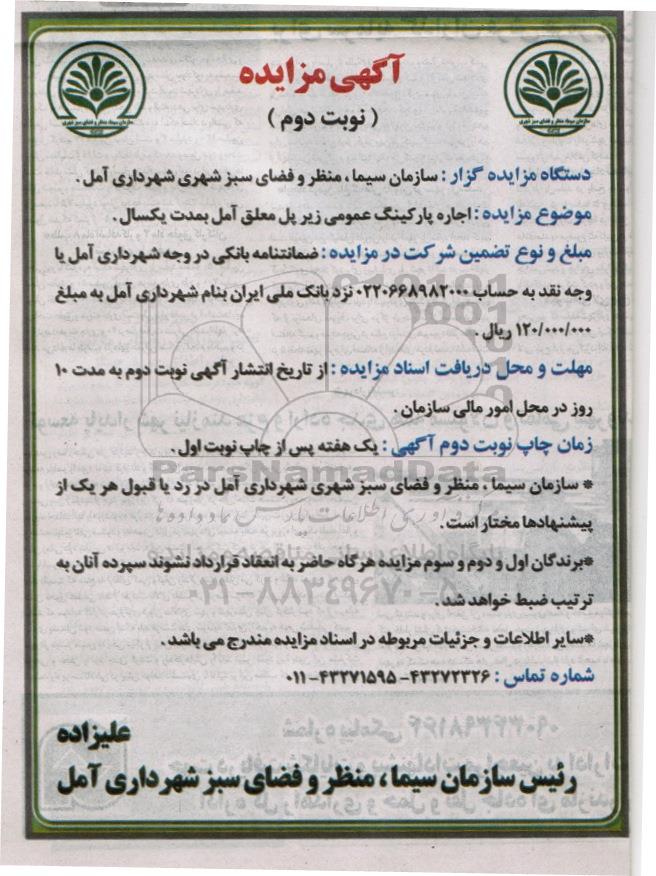 آگهی مزایده
( نوبت دوم )
سازمان سیما، منظر و فضای سبز شهری
سازمان سیما، منظر و فضای سبز شهری
دستگاه مزایده گزار : سازمان سیما ، منظر و فضای سبز شهری شهرداری آمل .
موضوع مزایده : اجاره پارکینگ عمومی زیر پل معلق آمل بمدت یکسال .
مبلغ و نوع تضمین شرکت در مزایده : ضمانتنامه بانکی در وجه شهرداری آمل یا
وجه نقد به حساب ۰۲۲۰۶۶۸۹۸۲۰۰۰ نزد بانک ملی ایران بنام شهرداری آمل به مبلغ
۱۲۰/۰۰۰/۰۰۰ ریال .
مهلت و محل دریافت اسناد مزایده : از تاریخ انتشار آگهی نوبت دوم به مدت ۱۰
روز در محل امور مالی سازمان .
زمان چاپ نوبت دوم آگهی : یک هفته پس از چاپ نوبت اول .
ParsNamadData
* سازمان سیما ، منظر و فضای سبز شهری شهرداری آمل در رد یا قبول هر یک از
پیشنهادها مختار است .
*برندگان اول و دوم و سوم مزایده هرگاه حاضر به انعقاد قرارداد نشوند سپرده آنان به
۰۲۱-۸۸۳۴۹۶۷۰-۵
ترتیب ضبط خواهد شد .
*سایر اطلاعات و جزئیات مربوطه در اسناد مزایده مندرج می باشد .
شماره تماس : ۴۳۲۷۲۳۲۶- ۴۳۲۷۱۵۹۵-۰۱۱
علیزاده
رئیس سازمان سیما ، منظر و فضای سبز شهرداری آمل